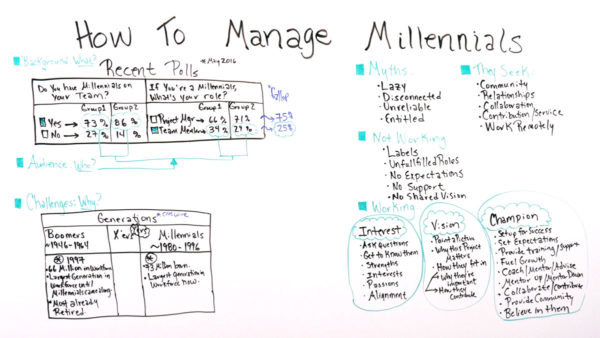 How To Manage Millennials
Background: What?
Recent Polls
*May 2016
Do You have Millennials on
your Team?
Group1 Group2
Yes → 73% 86%
No → 27% 14%
If You're a Millennial,
What's your role?
Group1 Group2
Project Mgr → 66% 71%
Team Mem → 34% 29%
*Gallup
→ 75%
→ 25%
Audience: Who?
Challenges: Why?
Generations
Boomers
~1946-1964
X'ers
Millennials
~1980-1996
1997
·66 Million in Workforce
·Largest Generation in
Workforce until
Millennials came along
·Most already
Retired.
·73 Million born.
·Largest generation in
Workforce now.
Myths:
·Lazy
·Disconnected
·Unreliable
·Entitled
They Seek:
·Community
·Relationships
·Collaboration
·Contribution/Service
·Work Remotely
Not Working
·Labels
·Unfullfilled Roles
·No Expectations
·No Support
·No Shared Vision
Working
Interest
·Ask questions
·Get to Know them
·Strengths
·Interests
·Passions
·Alignment
Vision
·Paint a Picture
·Why this Project
Matters
·How they fit in
·Why their role
important
·How they
Contribute
Champion
·Setup for Success
·Set Expectations
·Provide training/Support
·Fuel Growth
·Coach/Mentor/Advise
·Mentor up/Mentor Down
·Collaborate/Contribute
·Provide Community
·Believe in them